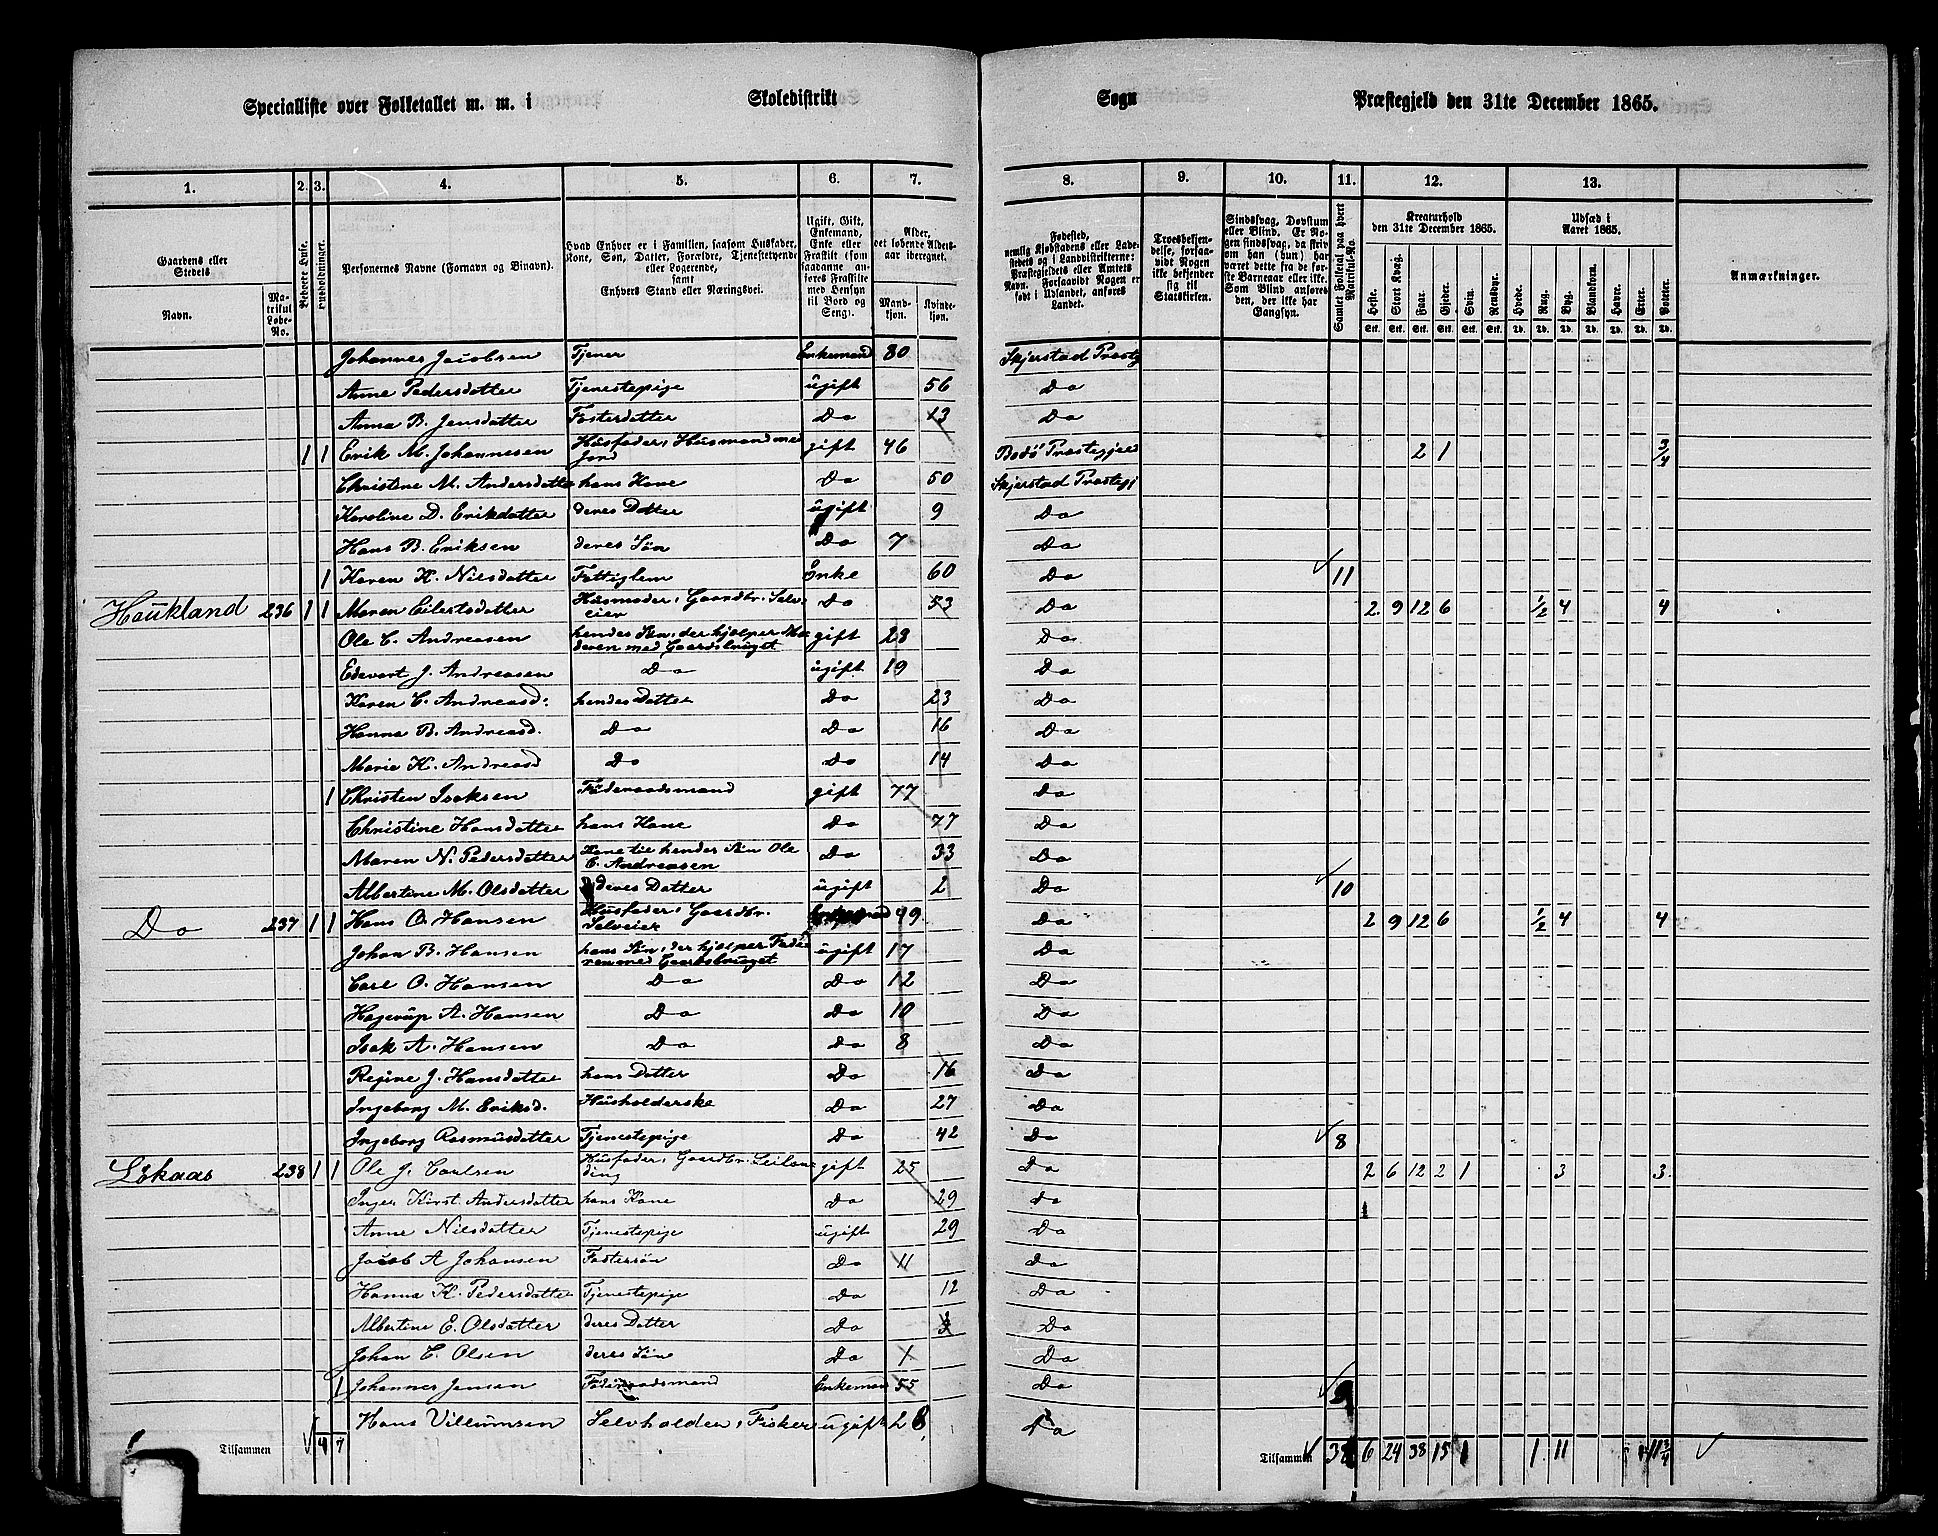 Specialliste over Folketallet m. m. i Skoledistrikt Sogn Præstegjeld den 31te December 1865.
1. 2. 3. 4. 5. 6. 7. 8. 9. 10. 11. 12. 13.
Gaardens eller Stedets Navn. Matrikul Løbe-No. Beboede Huse. Husholdninger. Personernes Navne (Fornavn og Binavn). Hvad Enhver er i Familien, saasom Husfader, Kone, Søn, Datter, Forældre, Tjenestetyende eller Logerende, samt Enhvers Stand eller Næringsvei. Ugift, Gift, Enkemand, Enke eller Fraskilt (som saadanne anføres Fraskilte med Hensyn til Bord og Seng). Alder, det løbende Aldersaar iberegnet. Mandkjøn. Kvindekjøn.
Fødested, nemlig Kjøbstadens eller Ladestedets og i Landdistrikterne: Præstegjeldets eller Amtets Navn. Forsaavidt Nogen er født i Udlandet, anføres Landet. Troesbekjendelse, forsaavidt Nogen ikke bekjender sig til Statskirken. Sindssvag, Døvstum eller Blind. Er Nogen sindssvag, da skriv om han (hun) har været dette fra de første Barneaar eller ikke. Som Blind anføres den, der ikke har Gangsyn. Samlet Folketal paa hvert Matrikul-No. Kreaturhold den 31te December 1865. Heste. Stort Kvæg. Faar. Gjeder. Svin. Rensdyr. Udsæd i Aaret 1865. Hvede. Rug. Byg. Blandkorn. Havre. Erter. Poteter. Anmærkninger.
Johannes Jacobsen Tjener Enkemand 80 Skjerstad Præstg
Anne Pedersdatter Tjenestepige ugift 56 Do
Anna B. Jensdatter Fosterdatter Do 13 Do
1 1 Erik M. Johannesen Husfader, Husmand med Jord gift 46 Bodö Præstegjeld 2 1 3/4
Christine M. Andersdatter hans Kone Do 50 Skjerstad Præstegj
Karoline D. Erikdatter deres Datter ugift 9 Do
Hans B. Eriksen deres Søn Do 7 Do
1 Karen K. Nilsdatter Fattiglem Enke 60 Do 11
Haukland 236 1 1 Maren Eilertsdatter Husmoder, Gaardbr. Selveier Do 53 Do 2 9 12 6 1/2 4 4
Ole C. Andreasen hendes Søn, der hjelper Moderen med Gaardsbruget gift 28 Do
Edevart J. Andreasen Do ugift 19 Do
Karen C. Andreasd. hendes Datter Do 23 Do
Hanna B. Andreasd. Do Do 16 Do
Marie K. Andreasd Do Do 14 Do
1 Christen Isaksen Føderaadsmand gift 77 Do
Christine Hansdatter hans Kone Do 77 Do
Maren N. Pedersdatter Kone til hendes Søn Ole C. Andreasen Do 33 Do
Albertine M. Olsdatter deres Datter ugift 2 Do 10
Do 237 1 1 Hans O. Hansen Husfader, Gaardbr. Selveier Enkemand 49 Do 2 9 12 6 1/2 4 4
Johan B. Hansen hans Søn, der hjelper Faderen med Gaardsbruget ugift 17 Do
Carl O. Hansen Do Do 12 Do
Hagerup A. Hansen Do Do 10 Do
Isak A. Hansen Do Do 8 Do
Regine J. Hansdatter hans Datter Do 16 Do
Ingeborg M. Eriksd. Husholderske Do 27 Do
Ingeborg Rasmusdatter Tjenestepige Do 42 Do 8
Løkaas 238 1 1 Ole J. Carlsen Husfader, Gaardbr. Leilending gift 25 Do 2 6 12 2 1 3 3.
Inger Kirst. Andersdatter hans Kone Do 29 Do
Anne Nilsdatter Tjenestepige ugift 29 Do
Jacob A Johansen Fostersøn Do 11 Do
Hanna K. Pedersdatter Tjenestepige Do 12 Do
Albertine E. Olsdatter deres Datter Do 3 Do
Johan C. Olsen deres Søn Do 1 Do
1 Johannes Jensen Føderaadsmand Enkemand 55 Do 9
Hans Villumsen Selvholden, Fisker ugift 28 Do
Tilsammen 4 7 Tilsammen 38 6 24 38 15 1 1 11 11 3/4